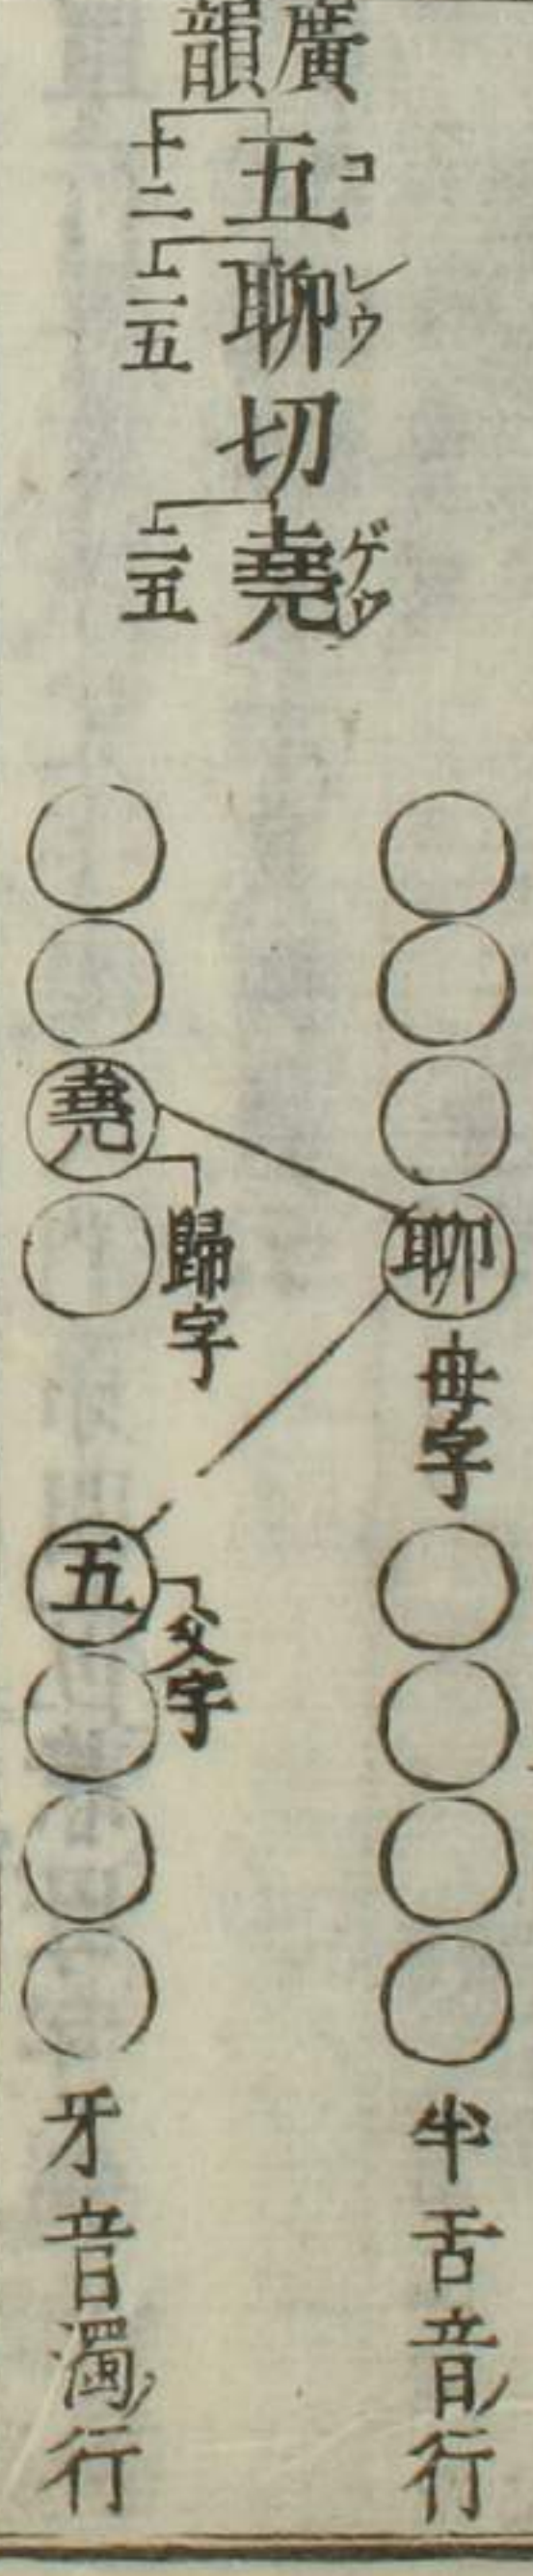 廣韻
五コ
十二
聊レウ
二五
切
堯ゲウ
二五
聊
母字
半舌音ノ行
堯
歸字
五
父字
牙音濁ノ行